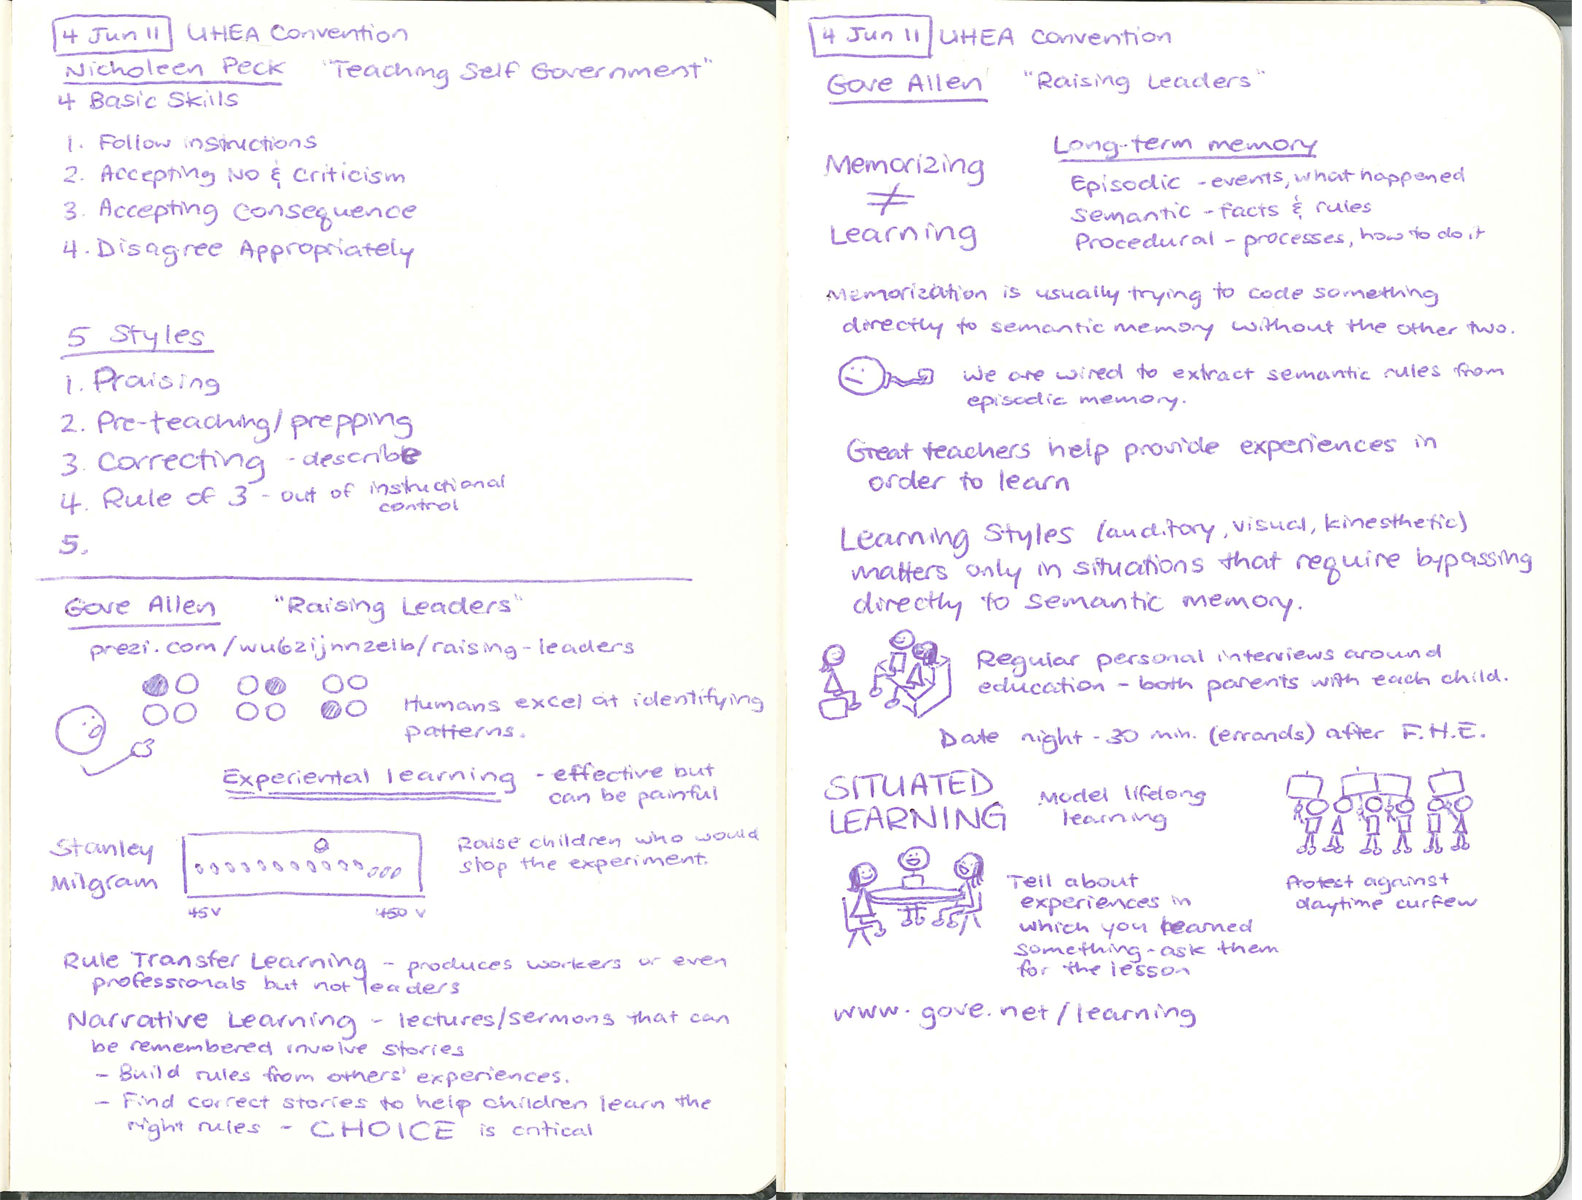 4 Jun 11 UHEA Convention
Nicholeen Peck "Teaching Self Government"
4 Basic Skills
1. Follow instructions
2. Accepting No & Criticism
3. Accepting Consequence
4. Disagree Appropriately
5 Styles
1. Praising
2. Pre-teaching/prepping
3. Correcting - describe
4. Rule of 3 - out of instructional
control
5.
Gove Allen "Raising Leaders"
prezi.com/wu6zijnnzelb/raising-leaders
Humans excel at identifying
patterns.
Experiental learning - effective but
can be painful
Stanley
Milgram
45V 450 V
Raise children who would
stop the experiment.
Rule Transfer Learning - produces workers or even
professionals but not leaders
Narrative Learning - lectures/sermons that can
be remembered involve stories
- Build rules from others' experiences.
- Find correct stories to help children learn the
right rules - CHOICE is critical
4 Jun 11 UHEA Convention
Gove Allen "Raising Leaders"
Memorizing
≠
Learning
Long-term memory
Episodic - events, what happened
Semantic - facts & rules
Procedural - processes, how to do it
Memorization is usually trying to code something
directly to semantic memory without the other two.
We are wired to extract semantic rules from
episodic memory.
Great teachers help provide experiences in
order to learn
Learning Styles (auditory, visual, kinesthetic)
matters only in situations that require bypassing
directly to semantic memory.
Regular personal interviews around
education - both parents with each child.
Date night - 30 min. (errands) after F.H.E.
SITUATED
LEARNING
Model lifelong
learning
Tell about
experiences in
which you learned
something - ask them
for the lesson
Protest against
daytime curfew
www.gove.net/learning